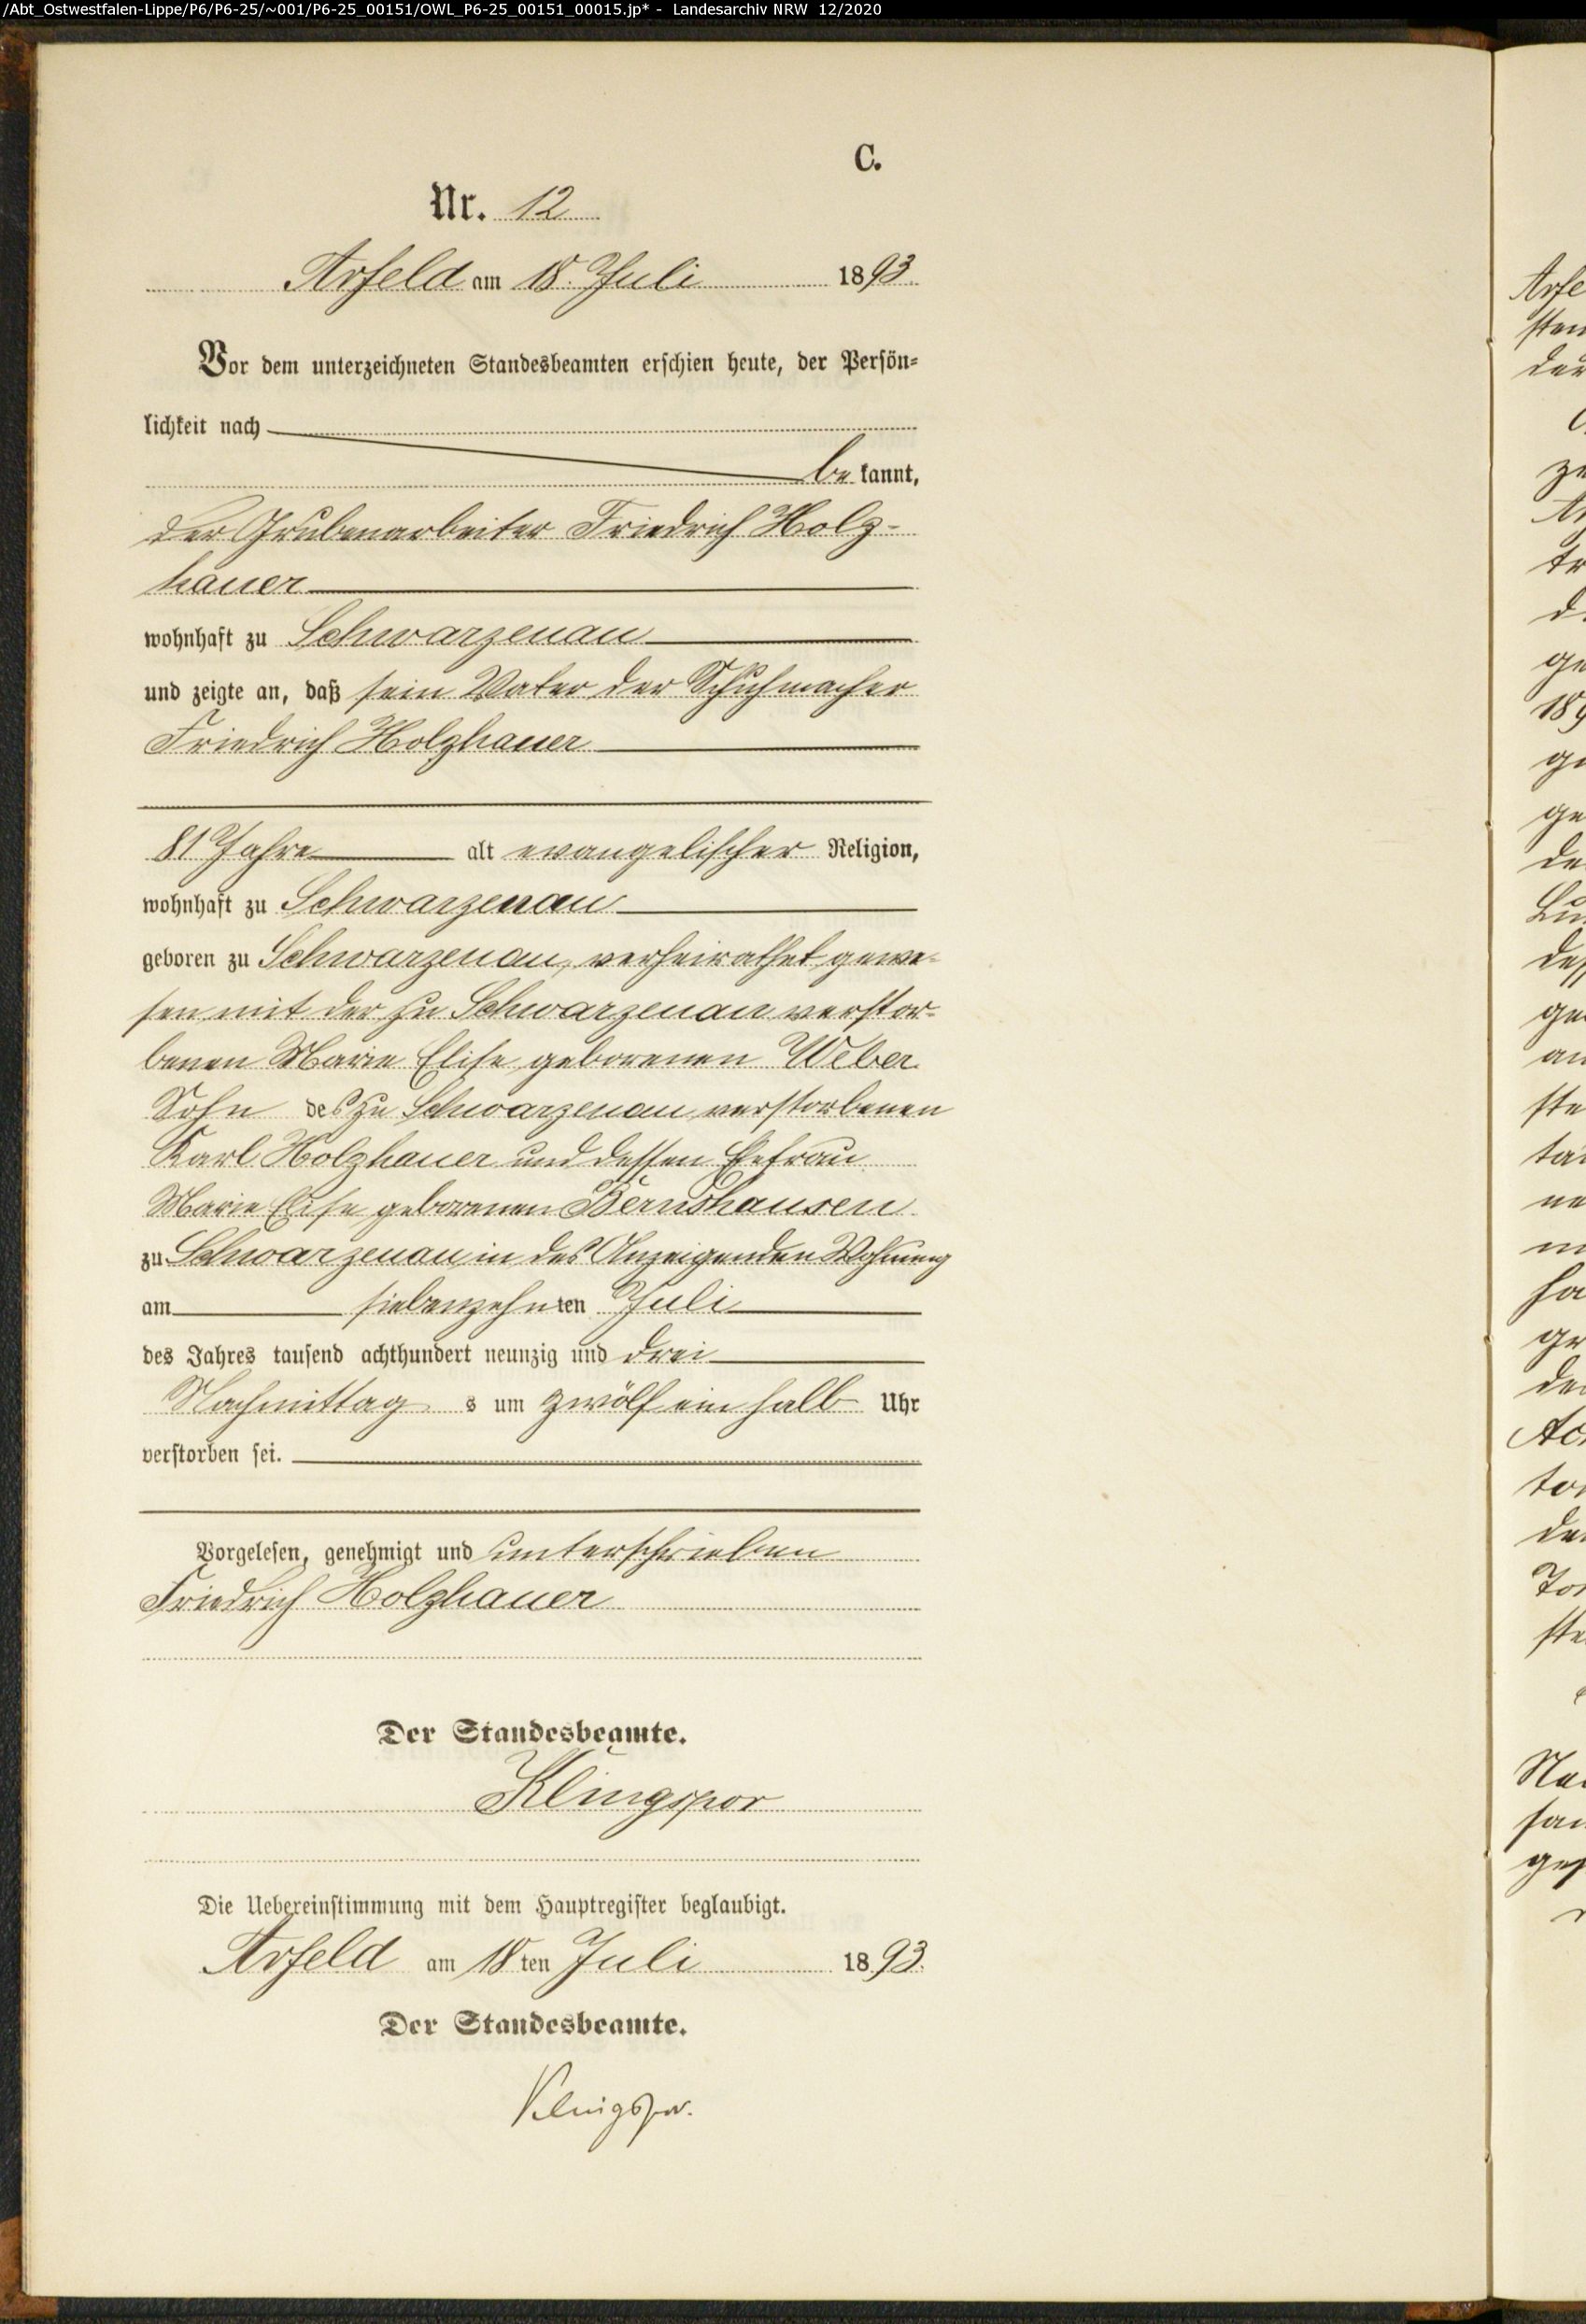 /Abt_Ostwestfalen-Lippe/P6/P6-25/~001/P6-25_00151/OWL_P6-25_00151_00015.jp* - Landesarchiv NRW 12/2020
C.
Nr. 12
Arfeld am 18. Juli 1893.
Vor dem unterzeichneten Standesbeamten erschien heute, der Persön-
lichkeit nach
be kannt,
der Grubenarbeiter Friedrich Holz-
hauer
wohnhaft zu Schwarzenau
und zeigte an, daß sein Vater der Schuhmacher
Friedrich Holzhauer
81 Jahre alt evangelischer Religion,
wohnhaft zu Schwarzenau
geboren zu Schwarzenau, verheirathet gewe-
sen mit der zu Schwarzenau verstor-
benen Marie Elise geborenen Weber
Sohn des zu Schwarzenau verstorbenen
Karl Holzhauer und dessen Ehefrau
Marie Elise geborenen Bernshausen
zu Schwarzenau in des Anzeigenden Wohnung
am siebenzehnten Juli
des Jahres tausend achthundert neunzig und drei
Nachmittag s um zwölf ein halb Uhr
verstorben sei.
Vorgelesen, genehmigt und unterschrieben
Friedrich Holzhauer
Der Standesbeamte.
Klingspor
Die Uebereinstimmung mit dem Hauptregister beglaubigt.
Arfeld am 18 ten Juli 1893.
Der Standesbeamte.
Klingspor.